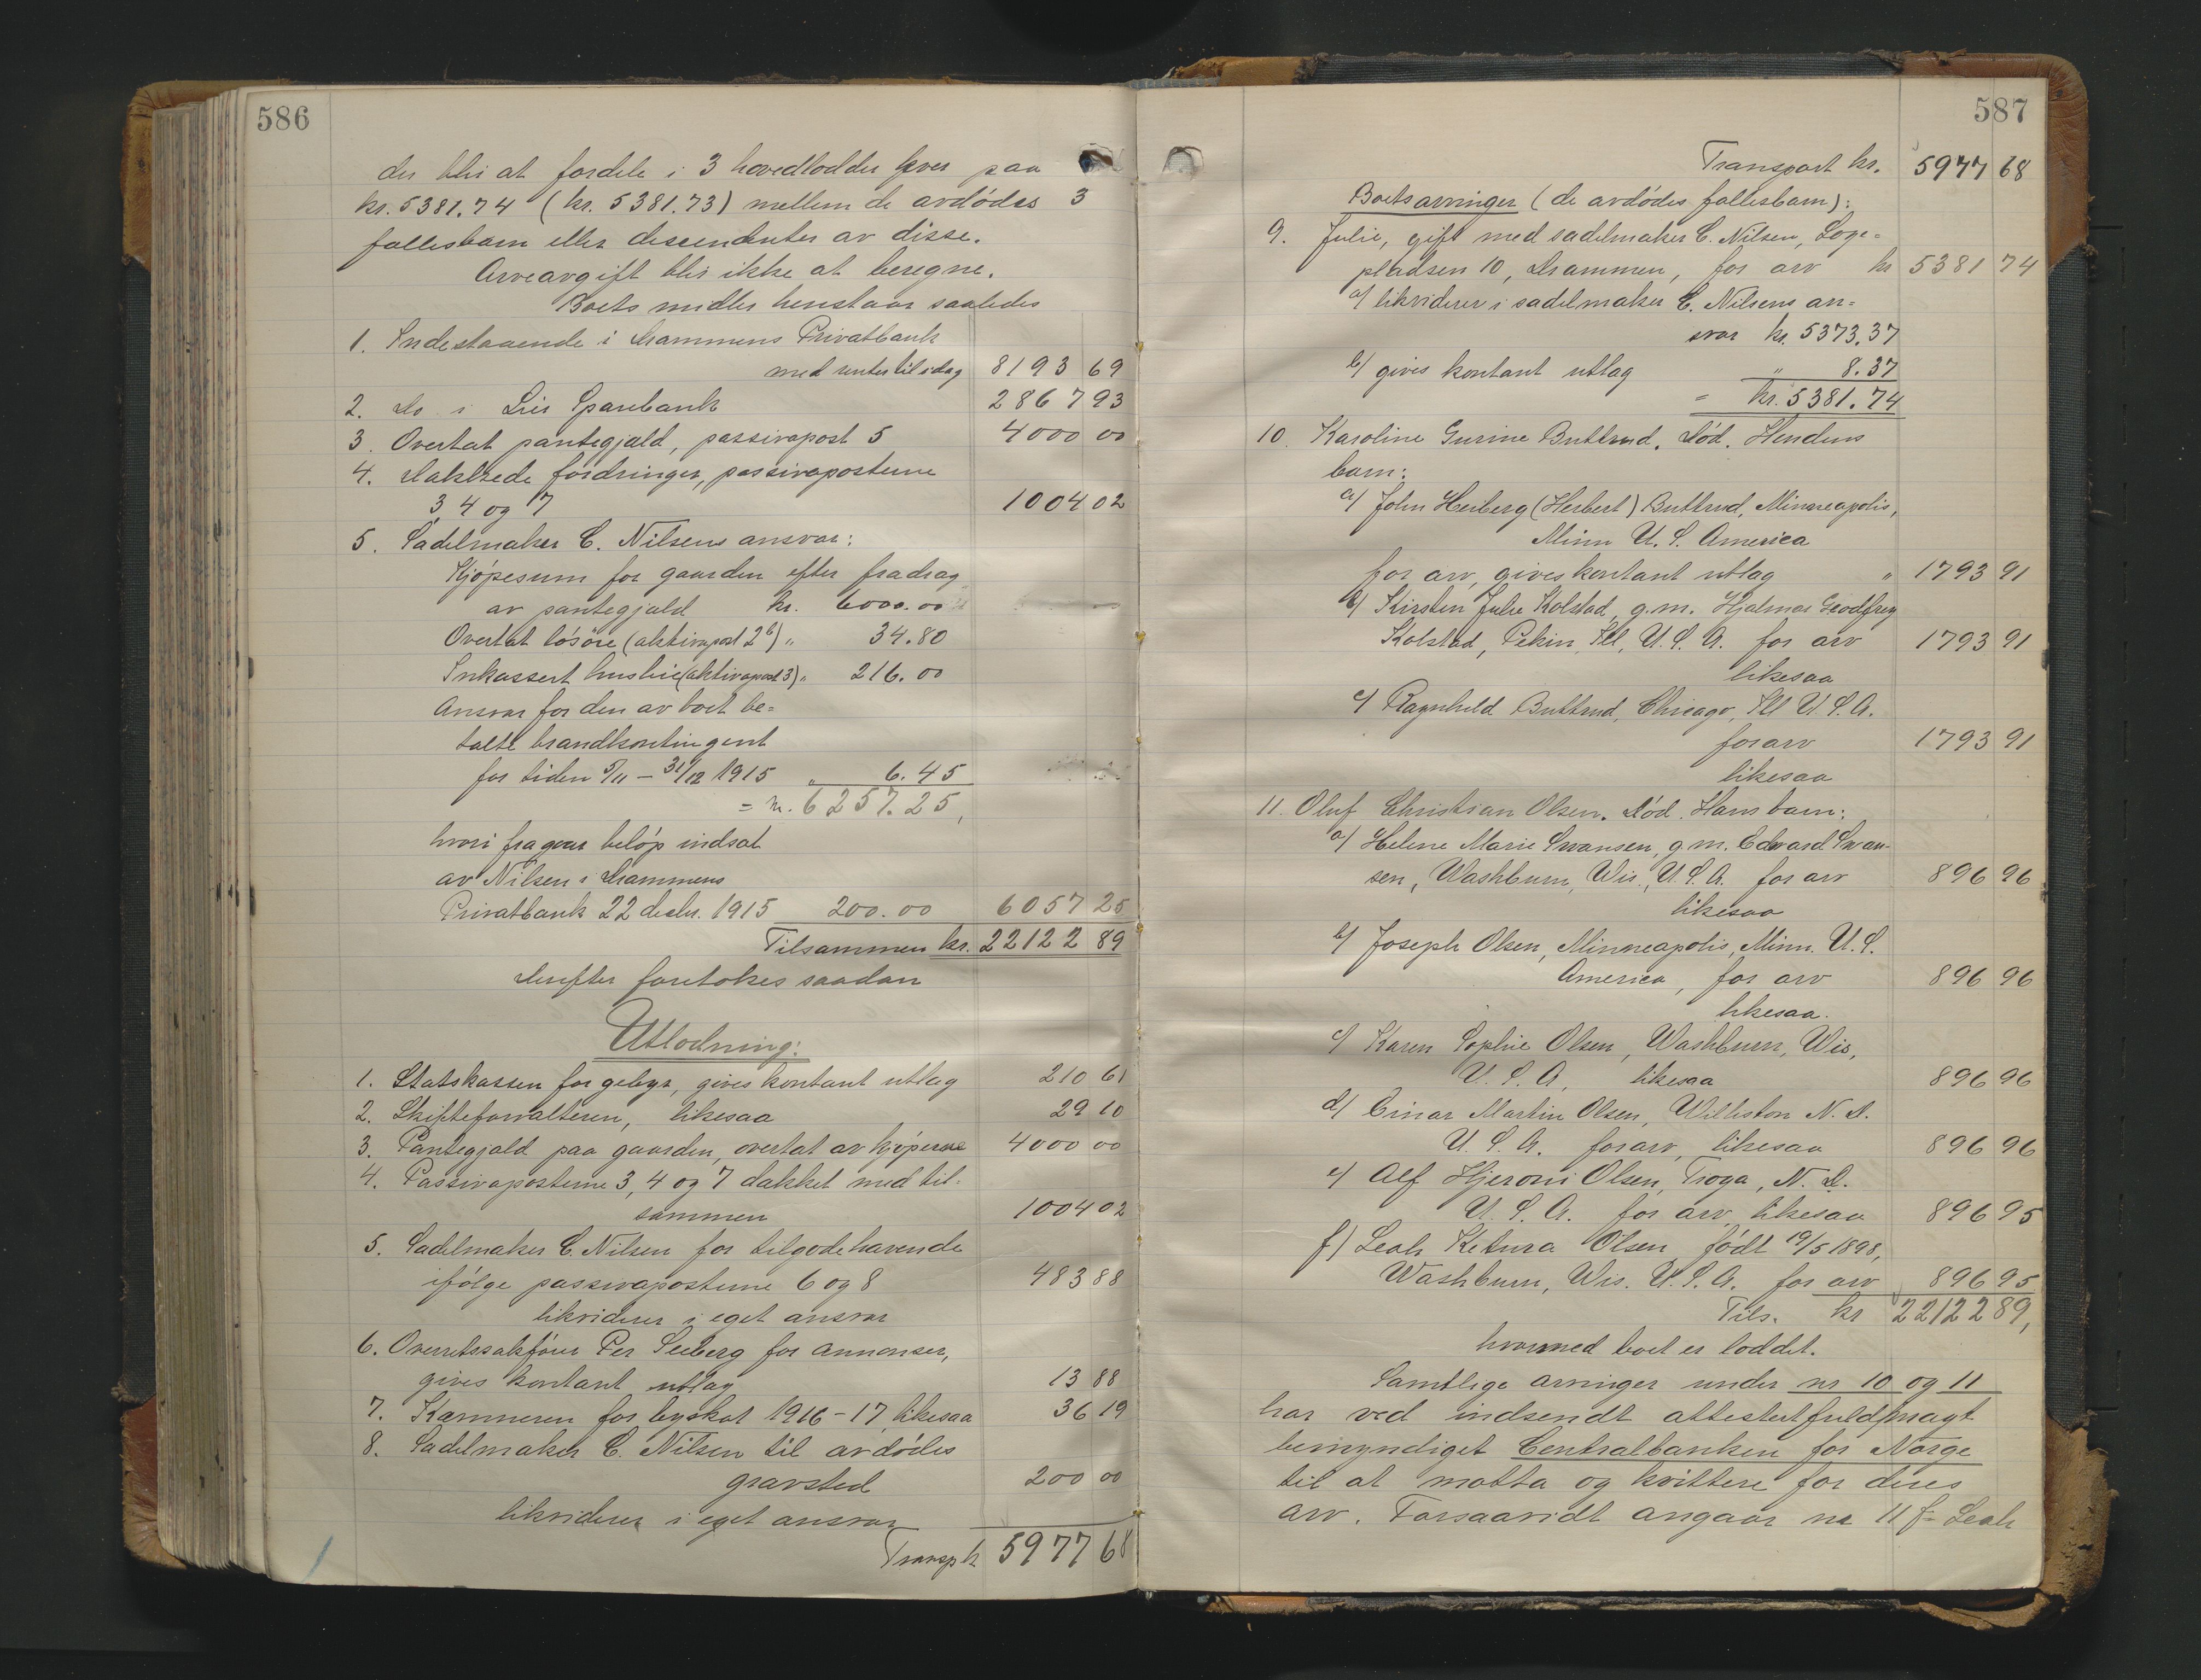 586
der blir at fordele i 3 hovedlodder hver paa
kr. 5381.74 (kr. 5381.73) mellem de avdödes 3
fællesbarn eller descendenter av disse.
Arveavgift blir ikke at beregne.
Boets midler henstaar saaledes
1. Indestaaende i Drammens Privatbank
med renter til idag 8193 69
2. Do i Lier Sparebank 2867 93
3. Overtat pantegjæld, passivapost 5 4000 00
4. Dækkede fordringer, passivaposterne
3 4 og 7 1004 02
5. Sadelmaker C. Nilsens ansvar:
Kjöpesum for gaarden efter fradrag
av pantegjæld kr. 6000.00
Overtat lösöre (aktivapost 2 b) " 34.80
Inkassert husleie (aktivapost 3) " 216.00
Ansvar for den av boet be=
talte brandkontingent
for tiden 5/11 – 31/12 1915 " 6.45
= kr. 6257.25,
hvori fragaar belöp indsat
av Nilsen i Drammens
Privatbank 22 decbr. 1915 200.00 6057 25
Tilsammen kr. 22122 89
Derefter foretokes saadan
Utlodning:
1. Statskassen for gebyr, gives kontant utlæg 210 61
2. Skifteforvalteren, likesaa 29 10
3. Pantegjæld paa gaarden, overtat av kjöperne 4000 00
4. Passivaposterne 3, 4 og 7 dækket med til=
sammen 1004 02
5. Sadelmaker C. Nilsen for tilgodehavende
ifölge passivaposterne 6 og 8 483 88
likviderer i eget ansvar
6. Overretssakförer Per Seeberg for annonser,
gives kontant utlæg 13 88
7. Kæmneren for byskat 1916–17, likesaa 36 19
8. Sadelmaker C. Nilsen til avdödes
gravsted 200 00
likviderer i eget ansvar
Transp kr 5977 68
587
Transport kr. 5977 68
Boets arvinger (de avdödes fællesbarn):
9. Julie, gift med sadelmaker C. Nilsen, Loge=
pladsen 10, Drammen, for arv kr 5381 74
a/ likviderer i sadelmaker C. Nilsens an=
svar kr. 5373.37
b/ gives kontant utlæg " 8.37
= kr. 5381.74
10. Karoline Gurine Buttrud. Död. Hendes
barn:
a/ John Heiberg (Herbert) Buttrud, Minneapolis,
Minn U. S. America
for arv, gives kontant utlæg " 1793 91
b/ Kirsten Julie Kolstad, g.m. Hjalmar Geodfrey
Kolstad, Pekin, Ill, U. S. A. for arv 1793 91
likesaa
c/ Ragnhild Buttrud, Chicago, Ill U. S. A.
for arv 1793 91
likesaa
11. Oluf Christian Olsen. Död. Hans barn:
a/ Helene Marie Swansen, g. m. Edward Swan-
sen, Washburn, Wis., U. S. A. for arv 896 96
likesaa
b/ Joseph Olsen, Minneapolis, Minn. U. S.
America, for arv 896 96
likesaa.
c/ Karen Sophie Olsen, Washburn, Wis,
U. S. A, likesaa 896 96
d/ Einar Martin Olsen, Williston N. D.
U. S. A. for arv, likesaa 896 96
e/ Alf Hjeroni Olsen, Tioga, N. D.
U. S. A. for arv, likesaa 896 95
f) Leah Ketura Olsen, födt 19/5 1898,
Washburn, Wis. U. S. A. for arv 896 95
Tils. kr 22122 89,
hvormed boet er loddet.
Samtlige arvinger under nr 10 og 11
har ved indsendt attestert fuldmagt
bemyndiget Centralbanken for Norge
til at motta og kvittere for deres
arv. Forsaavidt angaar nr 11 f - Leah